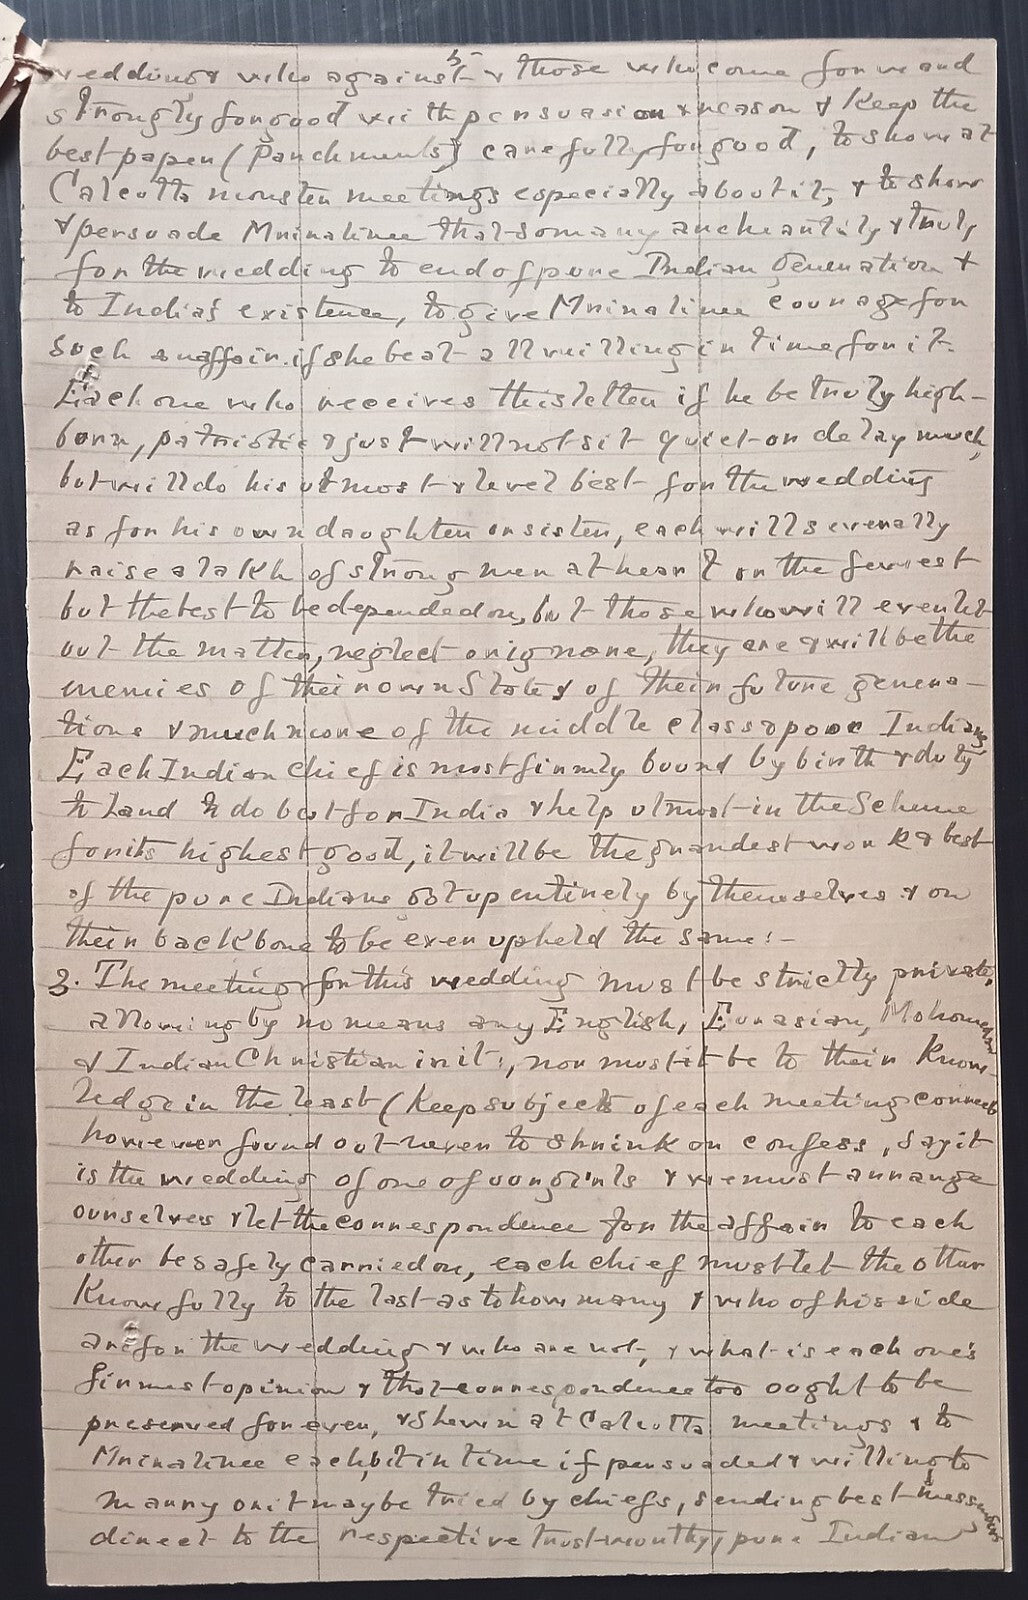 5
wedding & who against & those who come forward
strongly for good with persuasion & reason & keep the
best paper (Parchments) carefully for good, to show at
Calcutta monster meetings especially about it, & to show
& persuade Mrinalinee that so many are heartily & truly
for the wedding to end of pure Indian Generation &
to India's existence, to give Mrinalinee courage for
such affair. if she be at all willing in time for it.
Each one who receives this letter if he be truly high-
born, patriotic & just will not sit quiet or delay much,
but will do his utmost & level best for the wedding
as for his own daughter or sister, each will severally
raise a lakh of strong men at heart or the fewest
but the best to be depended on, but those who will even let
out the matter, neglect or ignore, they are & will be the
enemies of their own State & of their future genera-
tions & much more of the middle class & poor Indians
Each Indian chief is most firmly bound by birth & duty
to land to do best for India & help utmost in the Scheme
for its highest good, it will be the grandest work & best
of the pure Indians got up entirely by themselves & on
their backbone to be even upheld the same:-
3. The meeting for this wedding must be strictly private,
allowing by no means any English, Eurasian, Mohomedan
& Indian Christian in it:, nor must it be to their Know-
ledge in the least (Keep subjects of each meeting correct
however found out never to shrink or confess, say it
is the wedding of one of our girls & we must arrange
ourselves & let the correspondence for the affair to each
other be safely carried on, each chief must let the other
Know fully to the last as to how many & who of his side
are for the wedding & who are not, & what is each one's
firmest opinion & that correspondence too ought to be
preserved for ever, & shewn at Calcutta meetings & to
Mrinalinee each bit in time if persuaded & willing to
marry or it may be tried by chiefs, sending best messengers
direct to the respective trustworthy pure Indian